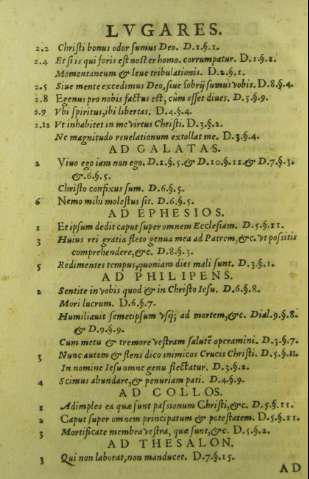 LVGARES.
2.2 Christi bonus odor sumus Deo. D.1.§.1.
2.4 Et si is qui foris est noster homo. corrumpatur. D.1.§.2.
Momentaneum & leue tribulationis. D.2.§.1.
2.5 Siue mente excedimus Deo, siue sobrij sumus vobis. D.8.§.4.
2.8 Egenus pro nobis factus est, cùm esset diues. D.5.§.9.
2.9 Vbi spiritus, ibi libertas. D.4.§.4.
2.12 Vt inhabitet in me virtus Christi. D.3.§.2.
Ne magnitudo reuelationum extollat me. D.3.§.4.
AD GALATAS.
2 Viuo ego iam non ego. D.1.§.5. & D.10.§.11. & D.7.§.3.
& .6.§.5.
Christo confixus sum. D.6.§.5.
6 Nemo mihi molestus sit. D.6.§.5.
AD EPHESIOS.
1 Et ipsum dedit caput super omnem Ecclesiam. D.5.§.11.
3 Huius rei gratia flecto genua mea ad Patrem, &c. vt possitis
comprehendere, &c. D.8.§.3.
5 Redimentes tempus, quoniam dies mali sunt. D.3.§.1.
AD PHILIPENS.
2 Sentite in vobis quod & in Christo Iesu. D.6.§.8.
Mori lucrum. D.6.§.7.
Humiliauit semetipsum vsq; ad mortem, &c. Dial.9.§.8.
& D.9.§.9.
Cum metu & tremore vestram salutē operamini. D.3.§.7.
3 Nunc autem & flens dico inimicos Crucis Christi. D.5.§.11.
In nomine Iesu omne genu flectatur. D.3.§.2.
4 Scimus abundare, & penuriam pati. D.4.§.9.
AD COLLOS.
1 Adimpleo ea quæ sunt passionum Christi, &c. D.5.§.11.
2 Caput super omnem principatum & potestatem. D.5.§.11.
3 Mortificate membra vestra, quæ sunt, &c. D.5.§.2.
AD THESALON.
3 Qui non laborat, non manducet. D.7.§.15.
AD